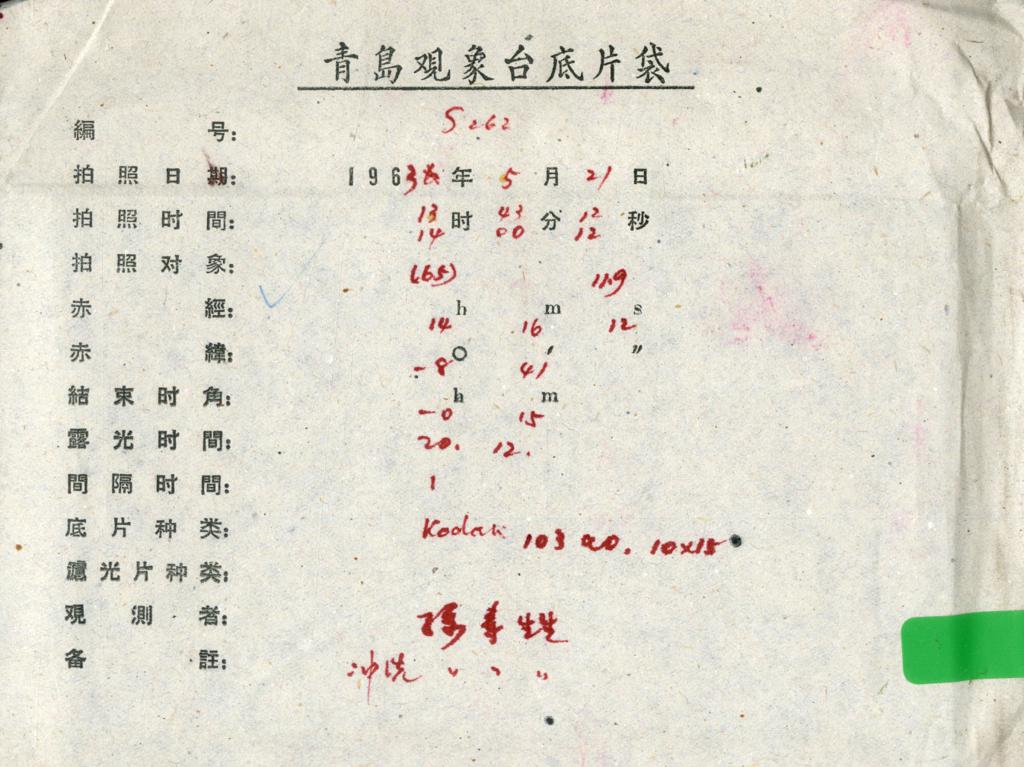 青島观象台底片袋
編号: S262
拍照日期: 1963年5月21日
拍照时間: 13时43分12秒
14 00 12
拍照对象: (65) 119
赤經: 14h 16m 12s
赤緯: -8° 41′ ″
結束时角: -0h 15m
露光时間: 20. 12.
間隔时間: 1
底片种类: Kodak 103 aO. 10x15
濾光片种类:
观測者:
备註: 冲洗 〃 〃 〃